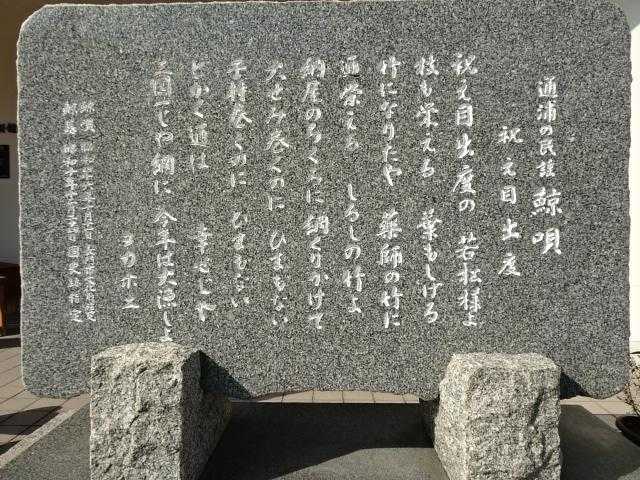 通浦の民謡 鯨唄
祝え目出度
祝え目出度の 若松様よ
枝も栄える 葉もしげる
竹になりたや 薬師の竹に
通栄える しるしの竹よ
納屋のろくろに 綱くりかけて
大せみ巻くのに ひまもない
子持巻くのに ひまもない
とかく通は 幸せじゃ
三国一じゃ網に 今年は大漁しよ
ヨカホエ